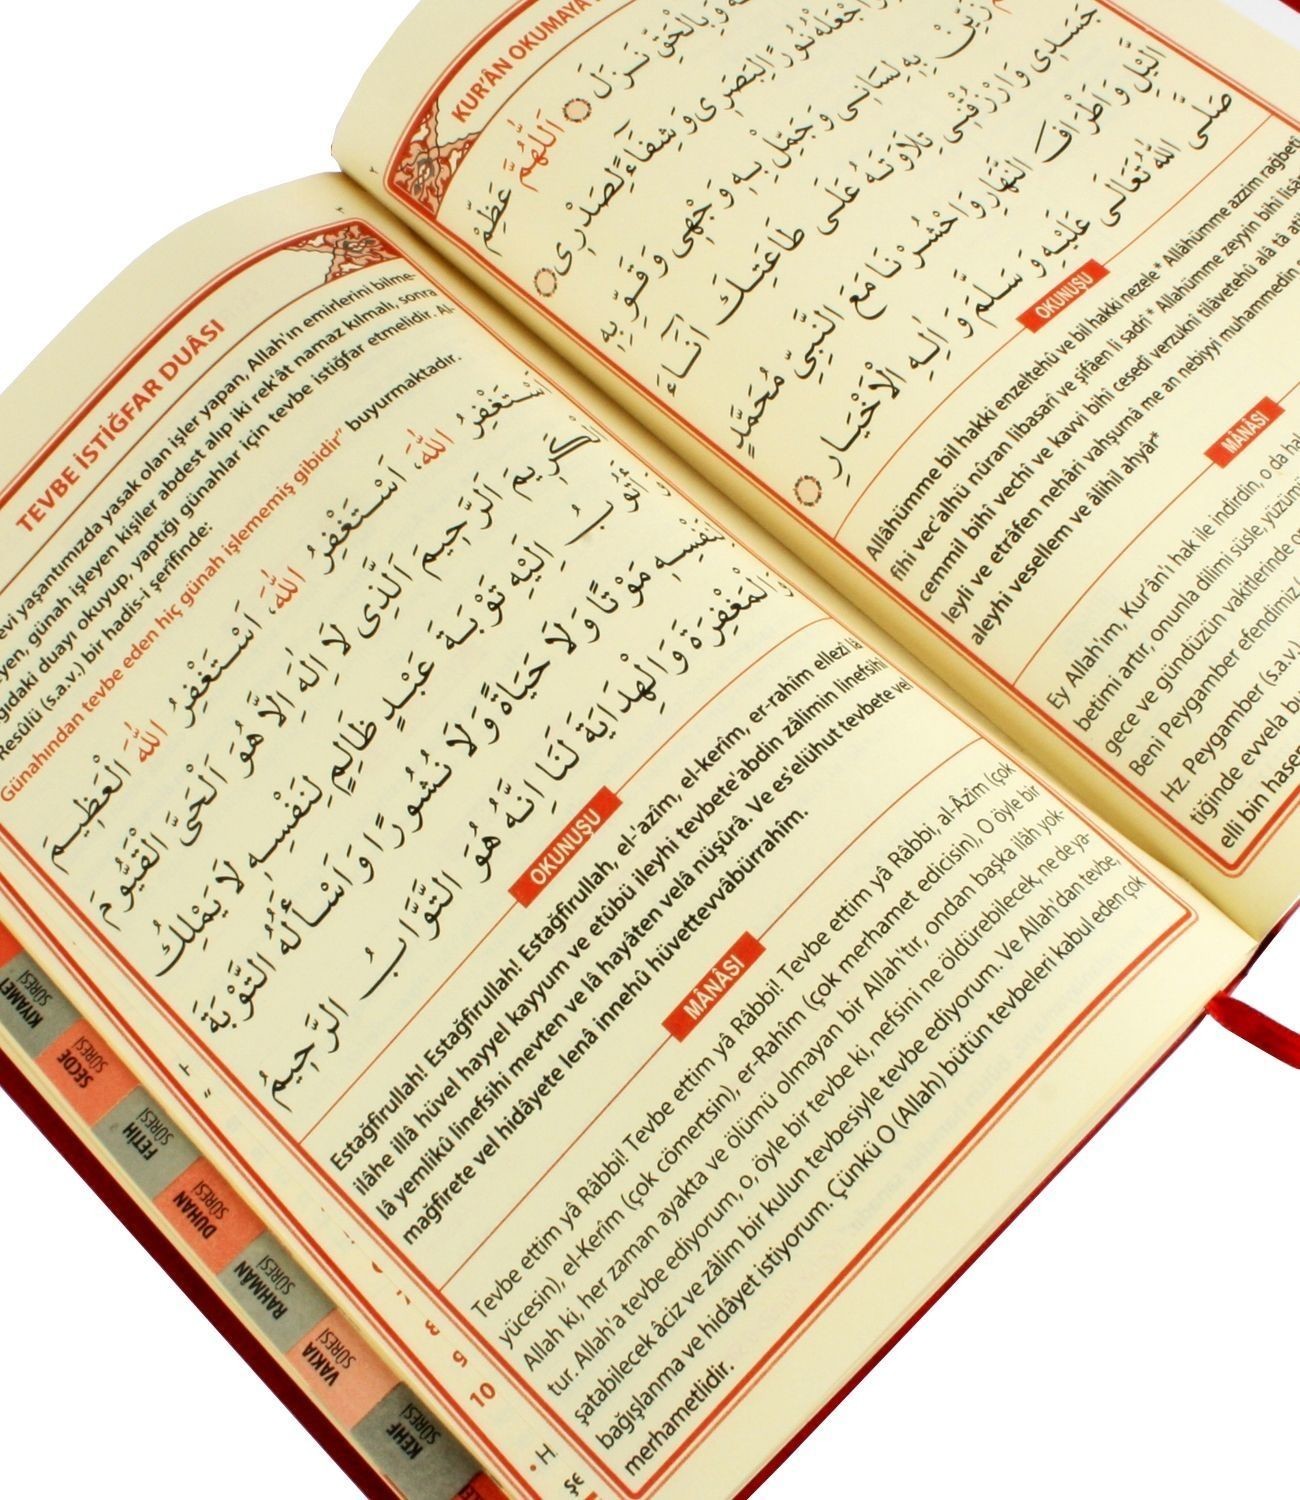 KUR'ÂN OKUMAYA
وَبِالْحَقِّ نَزَلَ اَللّٰهُمَّ عَظِّمْ
وَاجْعَلْهُ نُورًا لِبَصَرِى وَشِفَاءً لِصَدْرِى
زَيِّنْ بِهِ لِسَانِى وَجَمِّلْ بِهِ وَجْهِى وَقَوِّ بِهِ
جَسَدِى وَارْزُقْنِى تِلَاوَتَهُ عَلَى طَاعَتِكَ اٰنَاءَ
الَّيْلِ وَاَطْرَافَ النَّهَارِ وَاحْشُرْنَا مَعَ النَّبِىِّ مُحَمَّدٍ
صَلَّى اللّٰهُ تَعَالَى عَلَيْهِ وَسَلَّمَ وَاٰلِهِ الْاَخْيَارِ
OKUNUŞU
Allâhümme bil hakki enzeltehû ve bil hakki nezele* Allâhümme azzim rağbetî
fîhi vec'alhü nûran libasarî ve şifâen li sadrî* Allahümme zeyyin bihî lisân
cemmil bihî vechî ve kavvi bihî cesedî verzuknî tilâvetehû alâ tâ
leyli ve etrâfen nehâri vahşurnâ me an nebiyyi muhammedin
aleyhi vesellem ve âlihil ahyâr*
MÂNÂSI
Ey Allah'ım, Kur'ân'ı hak ile indirdin, o da
betimi artır, onunla dilimi süsle, yüzümü
gece ve gündüzün vakitlerinde
Beni Peygamber efendimiz
Hz. Peygamber (s.a.v.)
tiğinde evvela
elli bin
TEVBE İSTİĞFAR DUÂSI
yaşantımızda yasak olan işler yapan, Allah'ın emirlerini bilme-
yen, günah işleyen kişiler abdest alıp iki rek'ât namaz kılmalı, sonra
duayı okuyup, yaptığı günahlar için tevbe istiğfar etmelidir. Al-
Resûlü (s.a.v.) bir hadis-i şerifinde:
Günahından tevbe eden hiç günah işlememiş gibidir" buyurmaktadır.
اَسْتَغْفِرُ اللّٰهَ، اَسْتَغْفِرُ اللّٰهَ، اَسْتَغْفِرُ اللّٰهَ الْعَظِيمَ
الْكَرِيمَ اَلرَّحِيمَ اَلَّذِى لَا اِلٰهَ اِلَّا هُوَ اَلْحَىَّ الْقَيُّومَ
وَاَتُوبُ اِلَيْهِ تَوْبَةَ عَبْدٍ ظَالِمٍ لِنَفْسِهِ لَا يَمْلِكُ
لِنَفْسِهِ مَوْتًا وَلَا حَيَاةً وَلَا نُشُورًا وَاَسْأَلُهُ التَّوْبَةَ
وَالْمَغْفِرَةَ وَالْهِدَايَةَ لَنَا اِنَّهُ هُوَ التَّوَّابُ الرَّحِيمُ
OKUNUŞU
Estağfirullah! Estağfirullah! Estağfirullah, el-'azîm, el-kerîm, er-rahîm ellezî lâ
ilâhe illâ hüvel hayyel kayyum ve etûbü ileyhi tevbete'abdin zâlimin linefsihî
lâ yemlikû linefsihî mevten ve lâ hayâten velâ nüşûrâ. Ve es'elühut tevbete vel
mağfirete vel hidâyete lenâ innehû hüvettevvâbürrahîm.
MÂNÂSI
Tevbe ettim yâ Râbbi! Tevbe ettim yâ Râbbi! Tevbe ettim yâ Râbbi, al-Âzîm (çok
yücesin), el-Kerîm (çok cömertsin), er-Rahîm (çok merhamet edicisin), O öyle bir
Allah ki, her zaman ayakta ve ölümü olmayan bir Allah'tır, ondan başka ilâh yok-
tur. Allah'a tevbe ediyorum, o, öyle bir tevbe ki, nefsini ne öldürebilecek, ne de ya-
şatabilecek âciz ve zâlim bir kulun tevbesiyle tevbe ediyorum. Ve Allah'dan tevbe,
bağışlanma ve hidâyet istiyorum. Çünkü O (Allah) bütün tevbeleri kabul eden çok
merhametlidir.
KIYAMET
SÛRESİ
SECDE
SÛRESİ
FETİH
SÛRESİ
DUHAN
SÛRESİ
RAHMÂN
SÛRESİ
VAKIA
SÛRESİ
KEHF
SÛRESİ
10